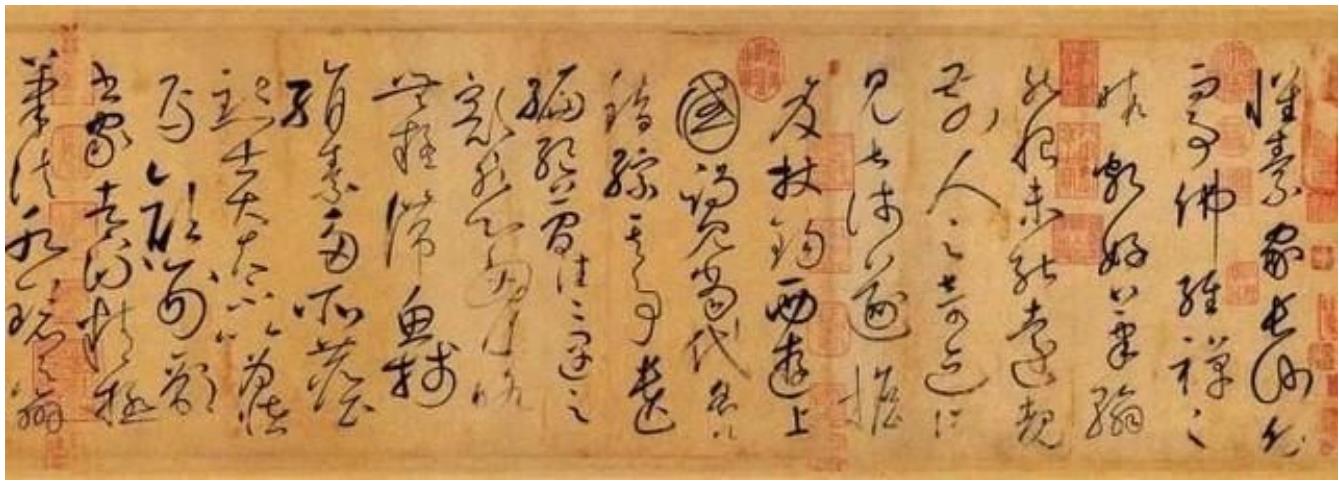 懷素家長沙幼
而事佛經禪之
暇頗好筆翰
然恨未能遠覩
前人之奇迹所
見甚淺遂擔
笈杖錫西遊上
國謁見當代名公
錯綜其事遺
編絕簡往往遇之
豁然心胸略
無疑滯魚牋
絹素多所塵
點士大夫不以為怪
焉顏刑部
書家者流精極
筆法水鏡之辨